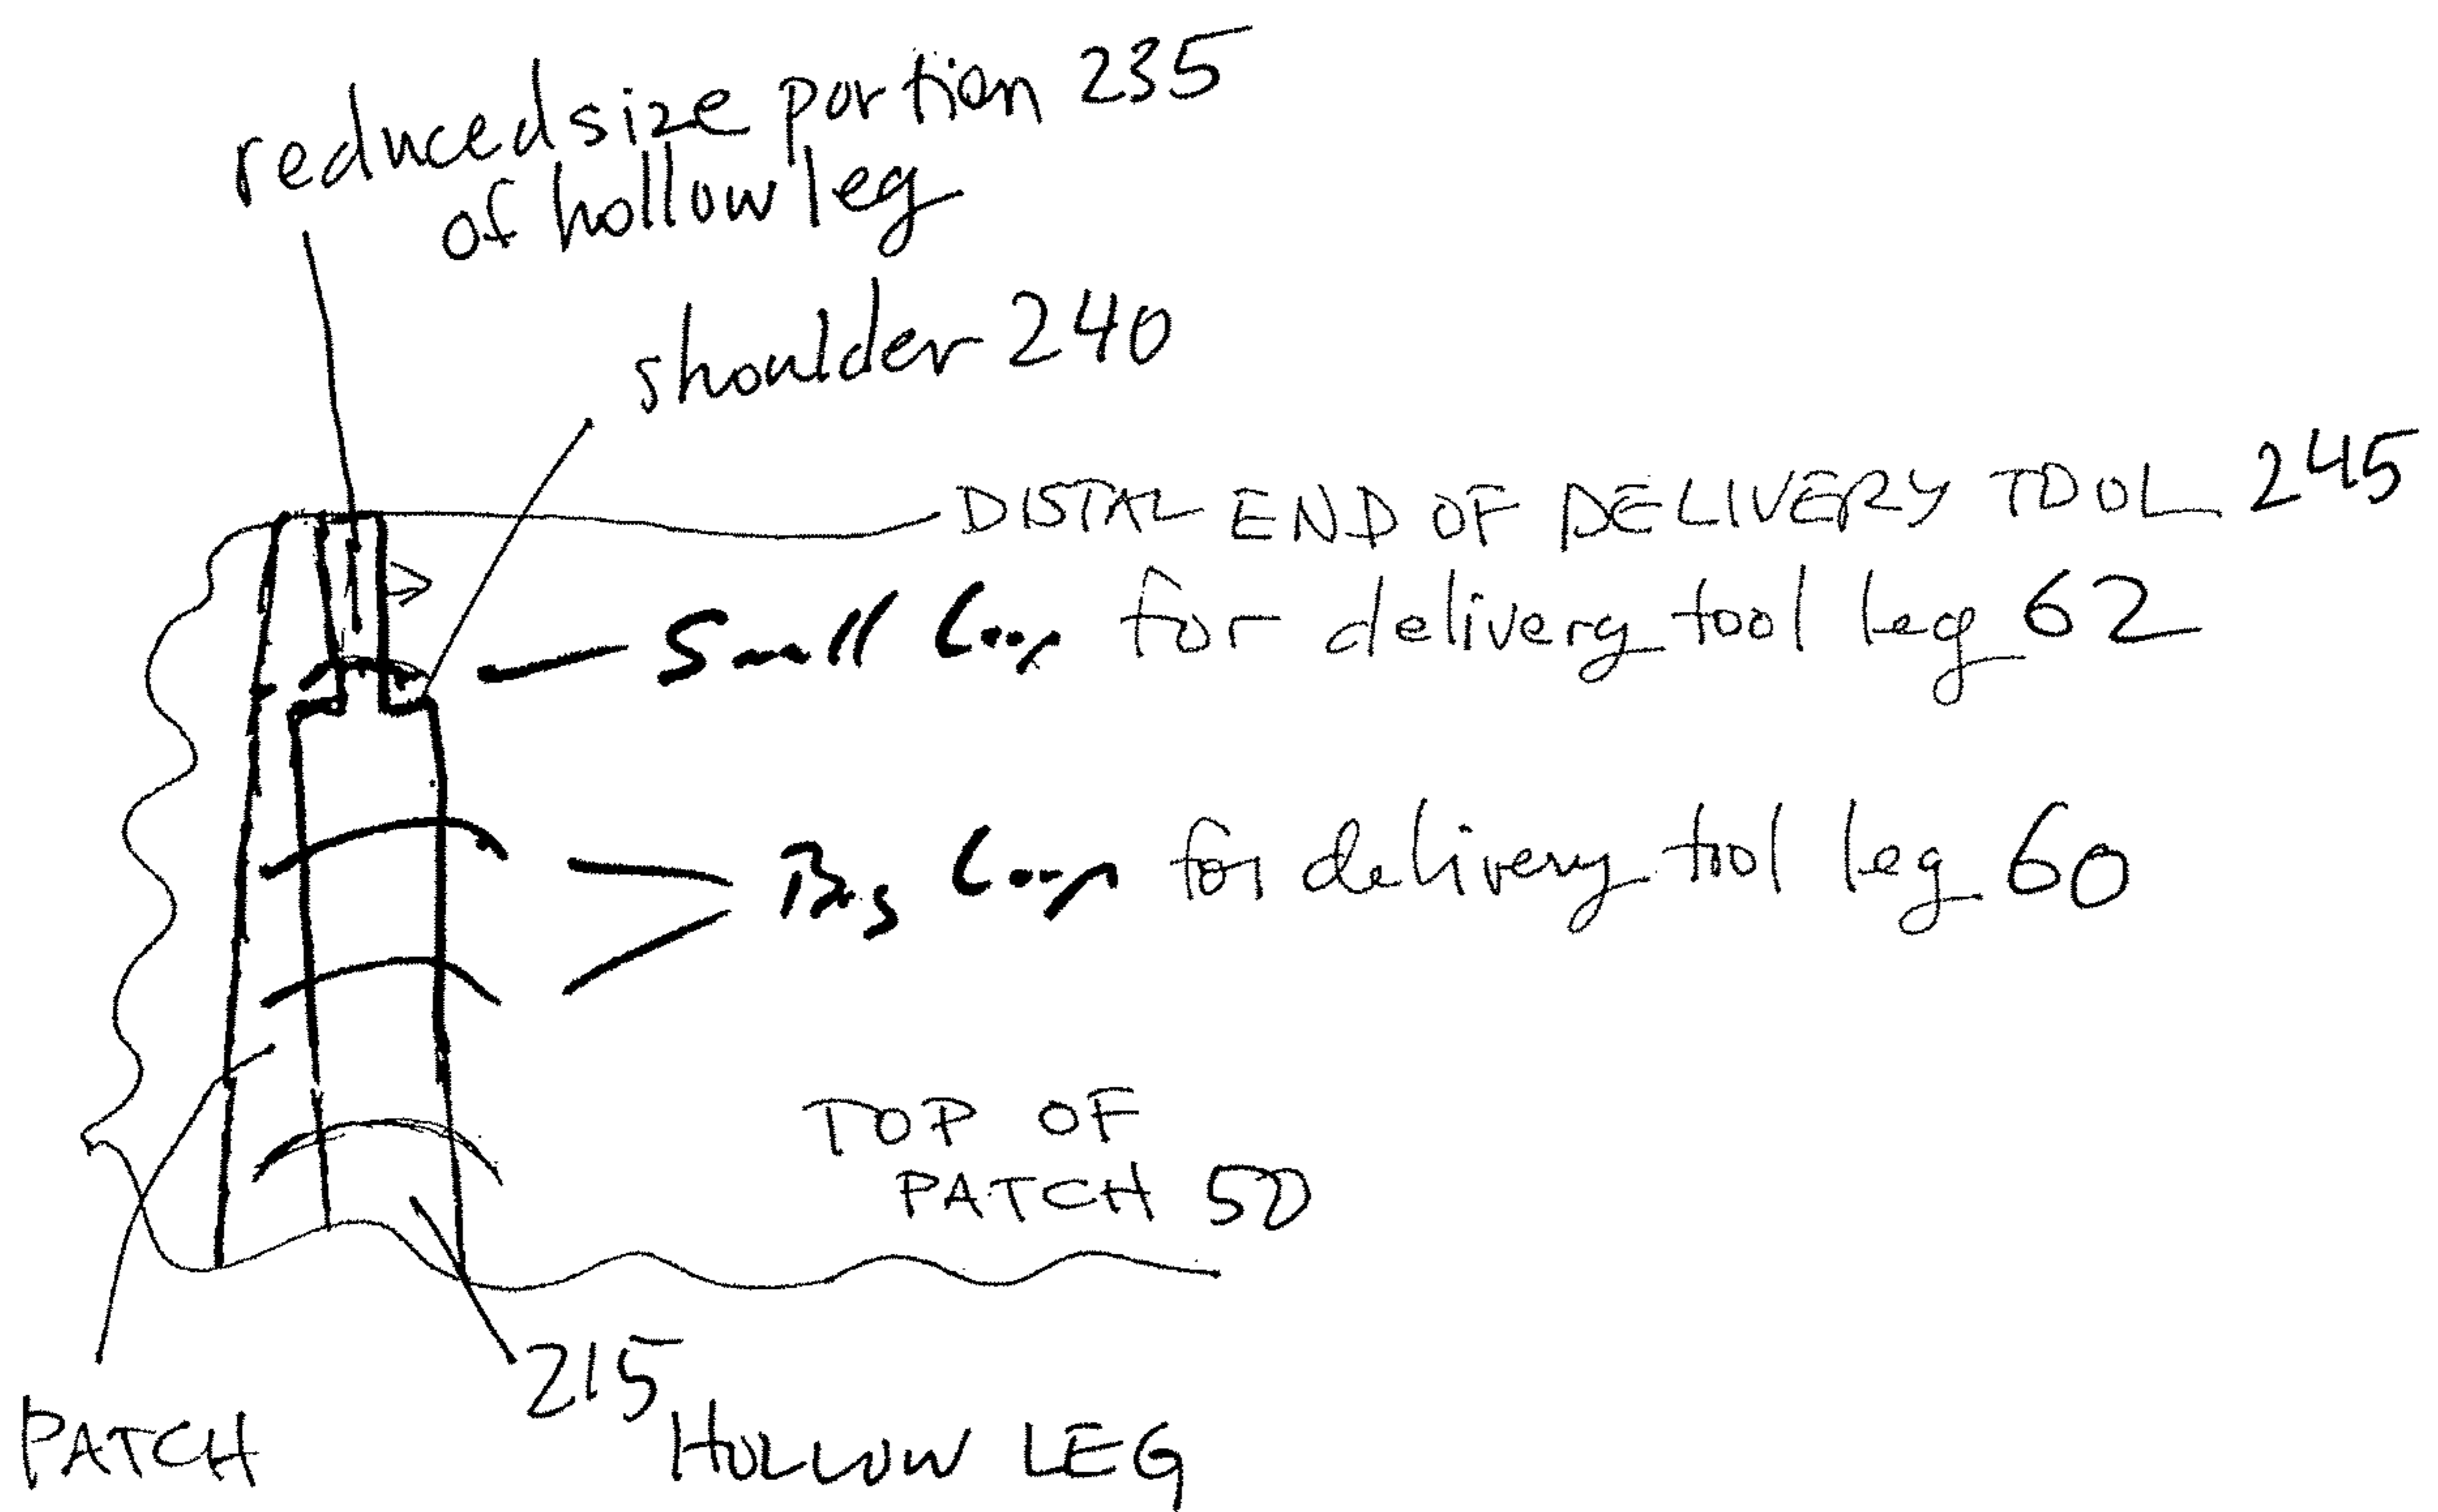 reduced size portion 235
of hollow leg
shoulder 240
DISTAL END OF DELIVERY TOOL 245
Small Loop for delivery tool leg 62
Big Loop for delivery tool leg 60
TOP OF
PATCH 50
215
PATCH
HOLLOW LEG